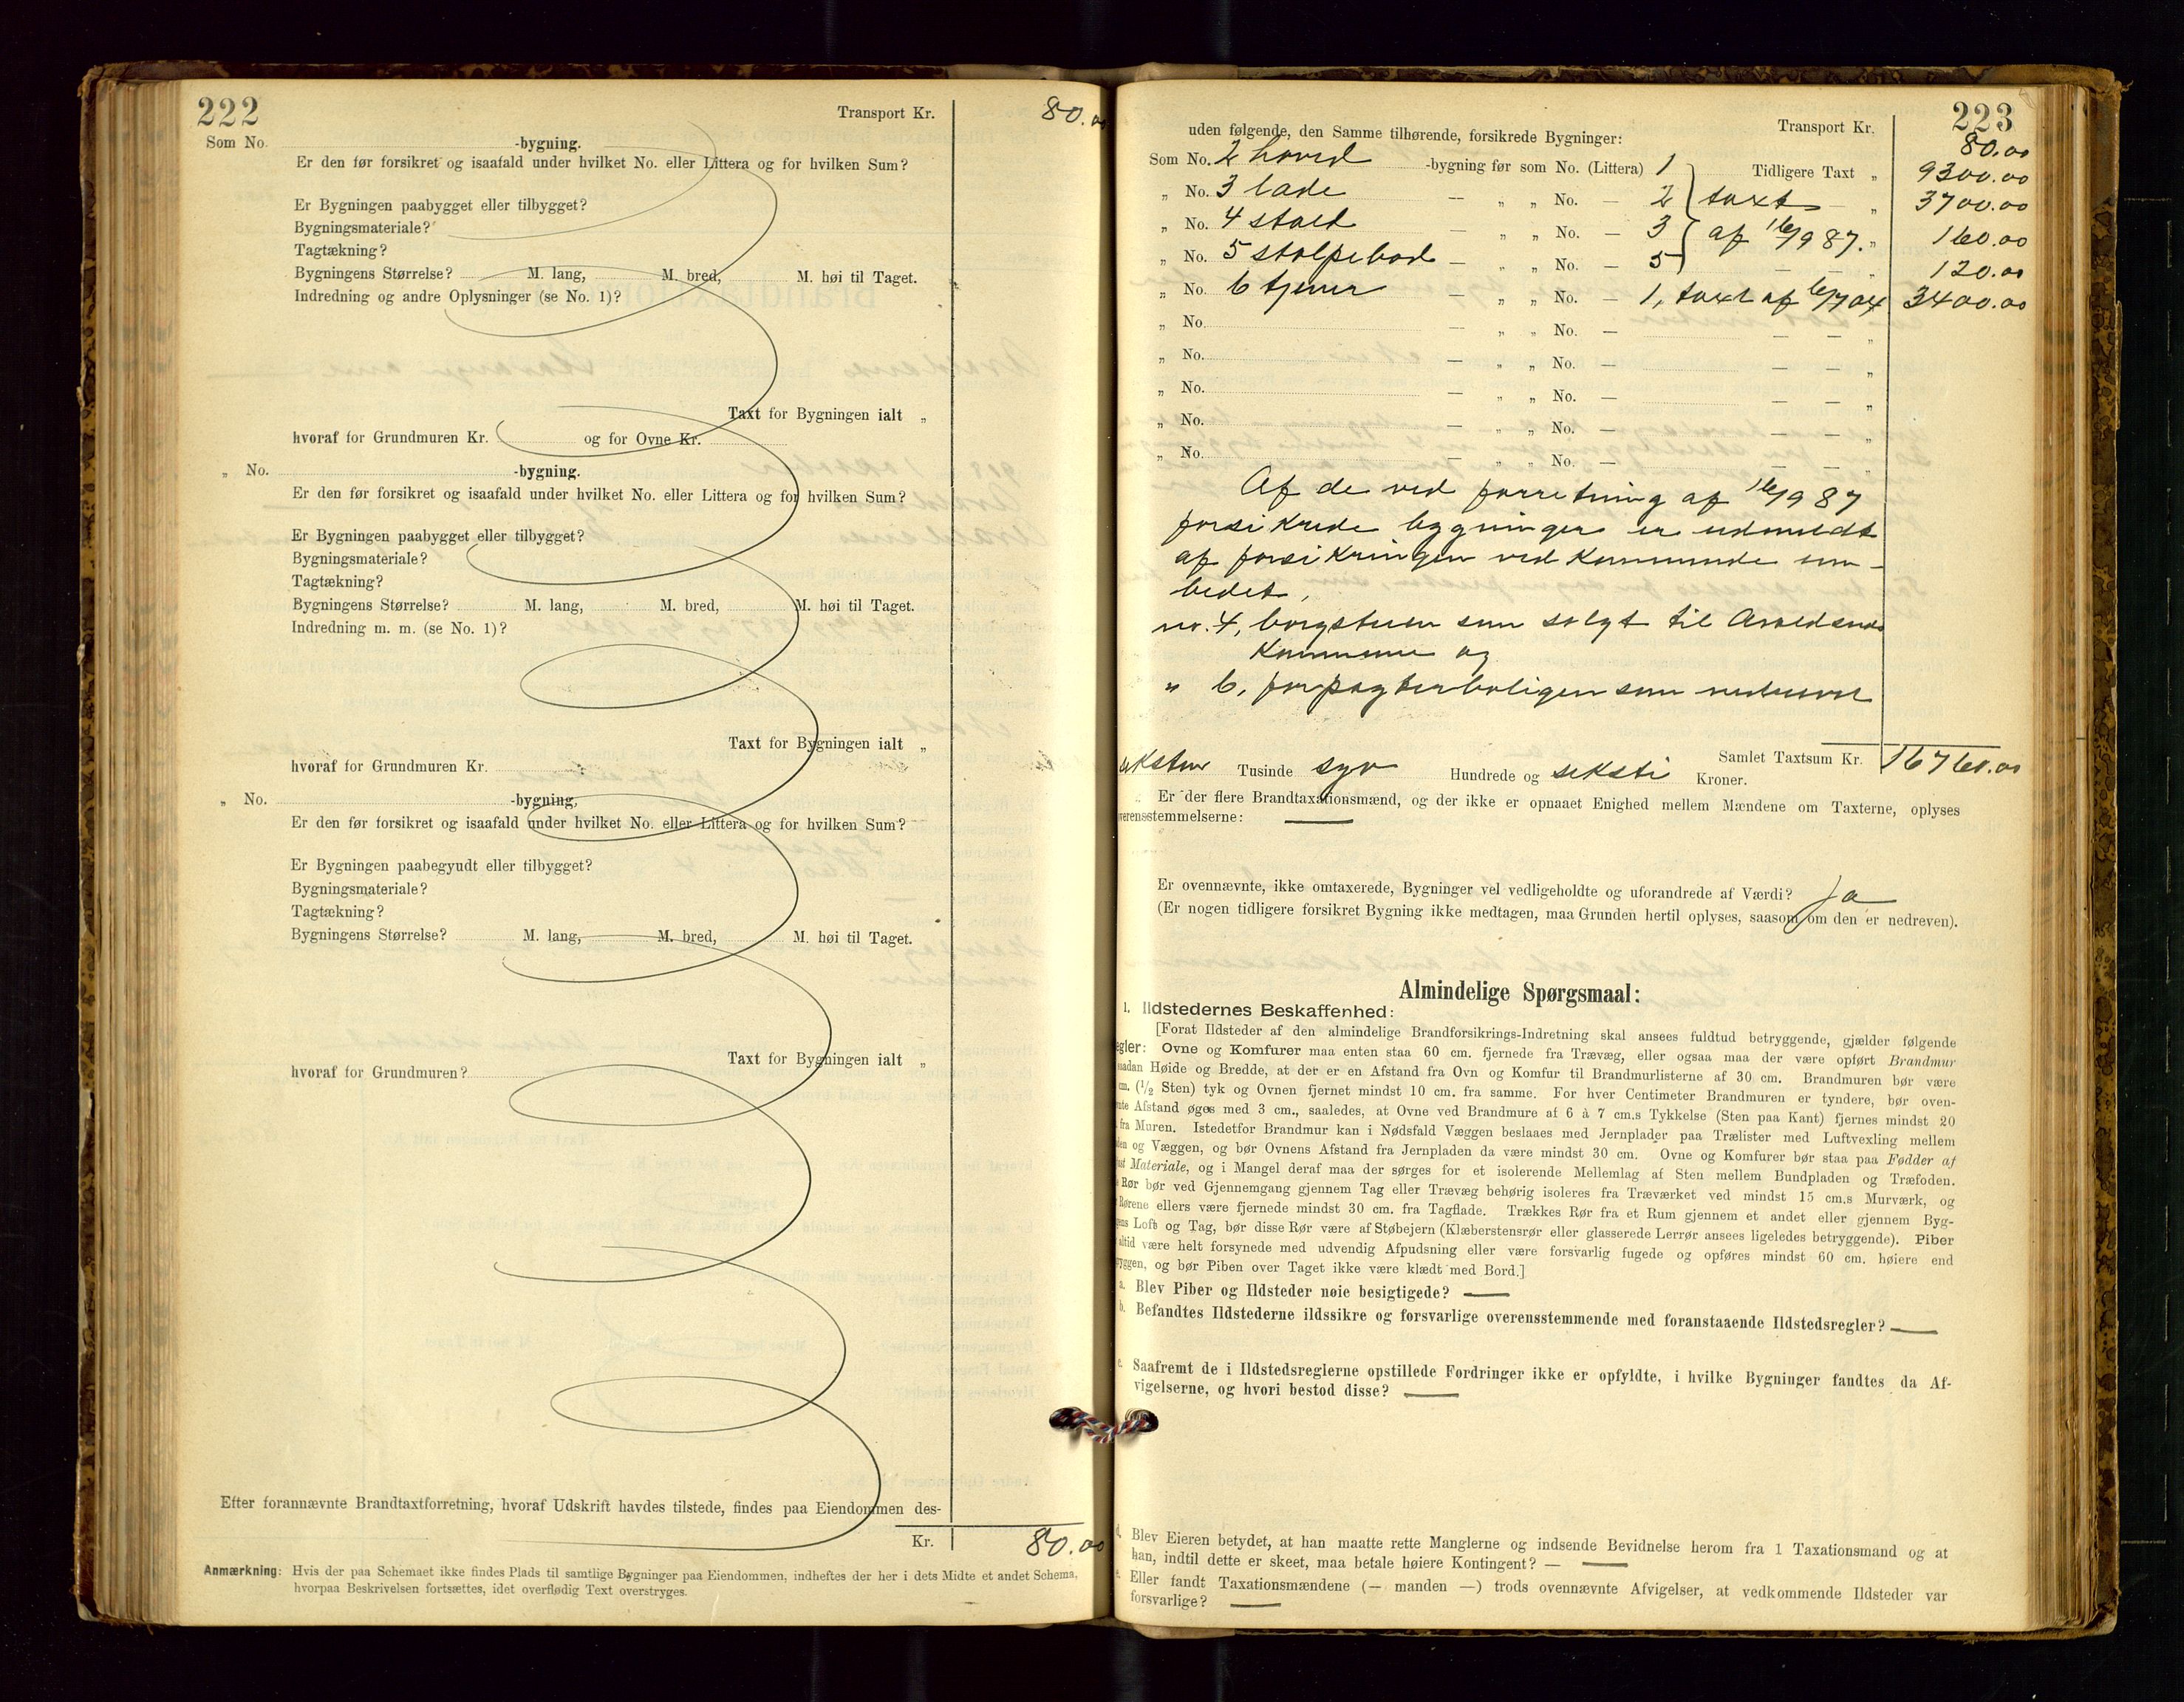 222
Transport Kr. 80.00
Som No. -bygning.
Er den før forsikret og isaafald under hvilket No. eller Littera og for hvilken Sum?
Er Bygningen paabygget eller tilbygget?
Bygningsmateriale?
Tagtækning?
Bygningens Størrelse? M. lang, M. bred, M. høi til Taget.
Indredning og andre Oplysninger (se No. 1)?
Taxt for Bygningen ialt „
hvoraf for Grundmuren Kr. og for Ovne Kr.
„ No. -bygning.
Er den før forsikret og isaafald under hvilket No. eller Littera og for hvilken Sum?
Er Bygningen paabygget eller tilbygget?
Bygningsmateriale?
Tagtækning?
Bygningens Størrelse? M. lang, M. bred, M. høi til Taget.
Indredning m. m. (se No. 1)?
Taxt for Bygningen ialt „
hvoraf for Grundmuren Kr.
„ No. -bygning,
Er den før forsikret og isaafald under hvilket No. eller Littera og for hvilken Sum?
Er Bygningen paabegyudt eller tilbygget?
Bygningsmateriale?
Tagtækning?
Bygningens Størrelse? M. lang, M. bred, M. høi til Taget.
Taxt for Bygningen ialt „
hvoraf for Grundmuren?
Efter forannævnte Brandtaxtforretning, hvoraf Udskrift havdes tilstede, findes paa Eiendommen des-
Kr. 80.00
Anmærkning: Hvis der paa Schemaet ikke findes Plads til samtlige Bygninger paa Eiendommen, indheftes der her i dets Midte et andet Schema,
hvorpaa Beskrivelsen fortsættes, idet overflødig Text overstryges.
223
Transport Kr. 80.00
uden følgende, den Samme tilhørende, forsikrede Bygninger:
Som No. 2 hoved -bygning før som No. (Littera) 1 Tidligere Taxt „ 9300.00
„ No. 3 lade — „ „ No. — 2 taxt — „ 3700.00
„ No. 4 stald — „ „ No. — 3 af 16/9 87. „ 160.00
„ No. 5 stolpebod — „ „ No. — 5 — — „ 120.00
„ No. 6 tjener — „ „ No. — 1, taxt af 6/7 04 3400.00
„ No. — „ „ No. — — — „
„ No. — „ „ No. — — — „
„ No. — „ „ No. — — — „
„ No. — „ „ No. — — — „
„ No. — „ „ No. — — — „
Af de ved forretning af 16/9 87
forsikrede bygninger er udmeldt
af forsikringen ved Kommunde em-
bedet,
no. 4, borgstuen som solgt til Avaldsnes
Kommune og
„ 6, forpagterboligen som nedrevet
seksten Tusinde syv Hundrede og seksti Kroner. Samlet Taxtsum Kr. 16760.00
Er der flere Brandtaxationsmænd, og der ikke er opnaaet Enighed mellem Mændene om Taxterne, oplyses
verensstemmelserne: —
Er ovennævnte, ikke omtaxerede, Bygninger vel vedligeholdte og uforandrede af Værdi? Ja
(Er nogen tidligere forsikret Bygning ikke medtagen, maa Grunden hertil oplyses, saasom om den er nedreven).
Almindelige Spørgsmaal:
1. Ildstedernes Beskaffenhed:
[Forat Ildsteder af den almindelige Brandforsikrings-Indretning skal ansees fuldtud betryggende, gjælder følgende
egler: Ovne og Komfurer maa enten staa 60 cm. fjernede fra Trævæg, eller ogsaa maa der være opført Brandmur
saadan Høide og Bredde, at der er en Afstand fra Ovn og Komfur til Brandmurlisterne af 30 cm. Brandmuren bør være
cm. (1/2 Sten) tyk og Ovnen fjernet mindst 10 cm. fra samme. For hver Centimeter Brandmuren er tyndere, bør oven-
nte Afstand øges med 3 cm., saaledes, at Ovne ved Brandmure af 6 à 7 cm.s Tykkelse (Sten paa Kant) fjernes mindst 20
fra Muren. Istedetfor Brandmur kan i Nødsfald Væggen beslaaes med Jernplader paa Trælister med Luftvexling mellem
den og Væggen, og bør Ovnens Afstand fra Jernpladen da være mindst 30 cm. Ovne og Komfurer bør staa paa Fødder af
ust Materiale, og i Mangel deraf maa der sørges for et isolerende Mellemlag af Sten mellem Bundpladen og Træfoden.
Rør bør ved Gjennemgang gjennem Tag eller Trævæg behørig isoleres fra Træværket ved mindst 15 cm.s Murværk, og
Rørene ellers være fjernede mindst 30 cm. fra Tagflade. Trækkes Rør fra et Rum gjennem et andet eller gjennem Byg-
gens Loft og Tag, bør disse Rør være af Støbejern (Klæberstensrør eller glasserede Lerrør ansees ligeledes betryggende). Piber
altid være helt forsynede med udvendig Afpudsning eller være forsvarlig fugede og opføres mindst 60 cm. høiere end
yggen, og bør Piben over Taget ikke være klædt med Bord.]
a. Blev Piber og Ildsteder nøie besigtigede? —
b. Befandtes Ildstederne ildssikre og forsvarlige overensstemmende med foranstaaende Ildstedsregler? —
c. Saafremt de i Ildstedsreglerne opstillede Fordringer ikke er opfyldte, i hvilke Bygninger fandtes da Af-
vigelserne, og hvori bestod disse? —
d. Blev Eieren betydet, at han maatte rette Manglerne og indsende Bevidnelse herom fra 1 Taxationsmand og at
han, indtil dette er skeet, maa betale høiere Kontingent? — —
e. Eller fandt Taxationsmændene (— manden —) trods ovennævnte Afvigelser, at vedkommende Ildsteder var
forsvarlige? —